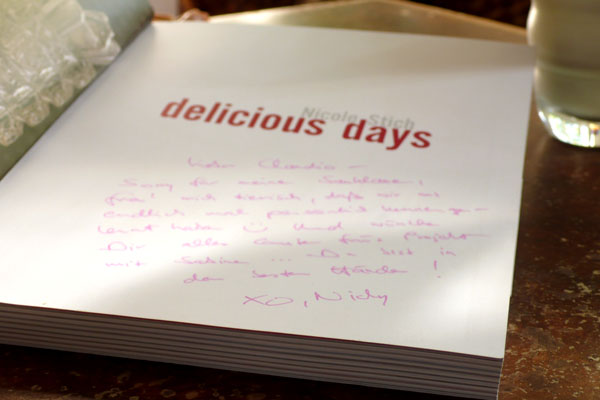 Nicole Stich
delicious days
Lieber Claudio –
Sorry für meine Sauklaue!
freu' mich tierisch, daß wir uns
endlich mal persönlich kennenge–
lernt haben ☺ Und wünsche
Dir alles Gute fürs Projekt
mit Sabine ... Du bist in
den besten Händen!
XO, Nicky